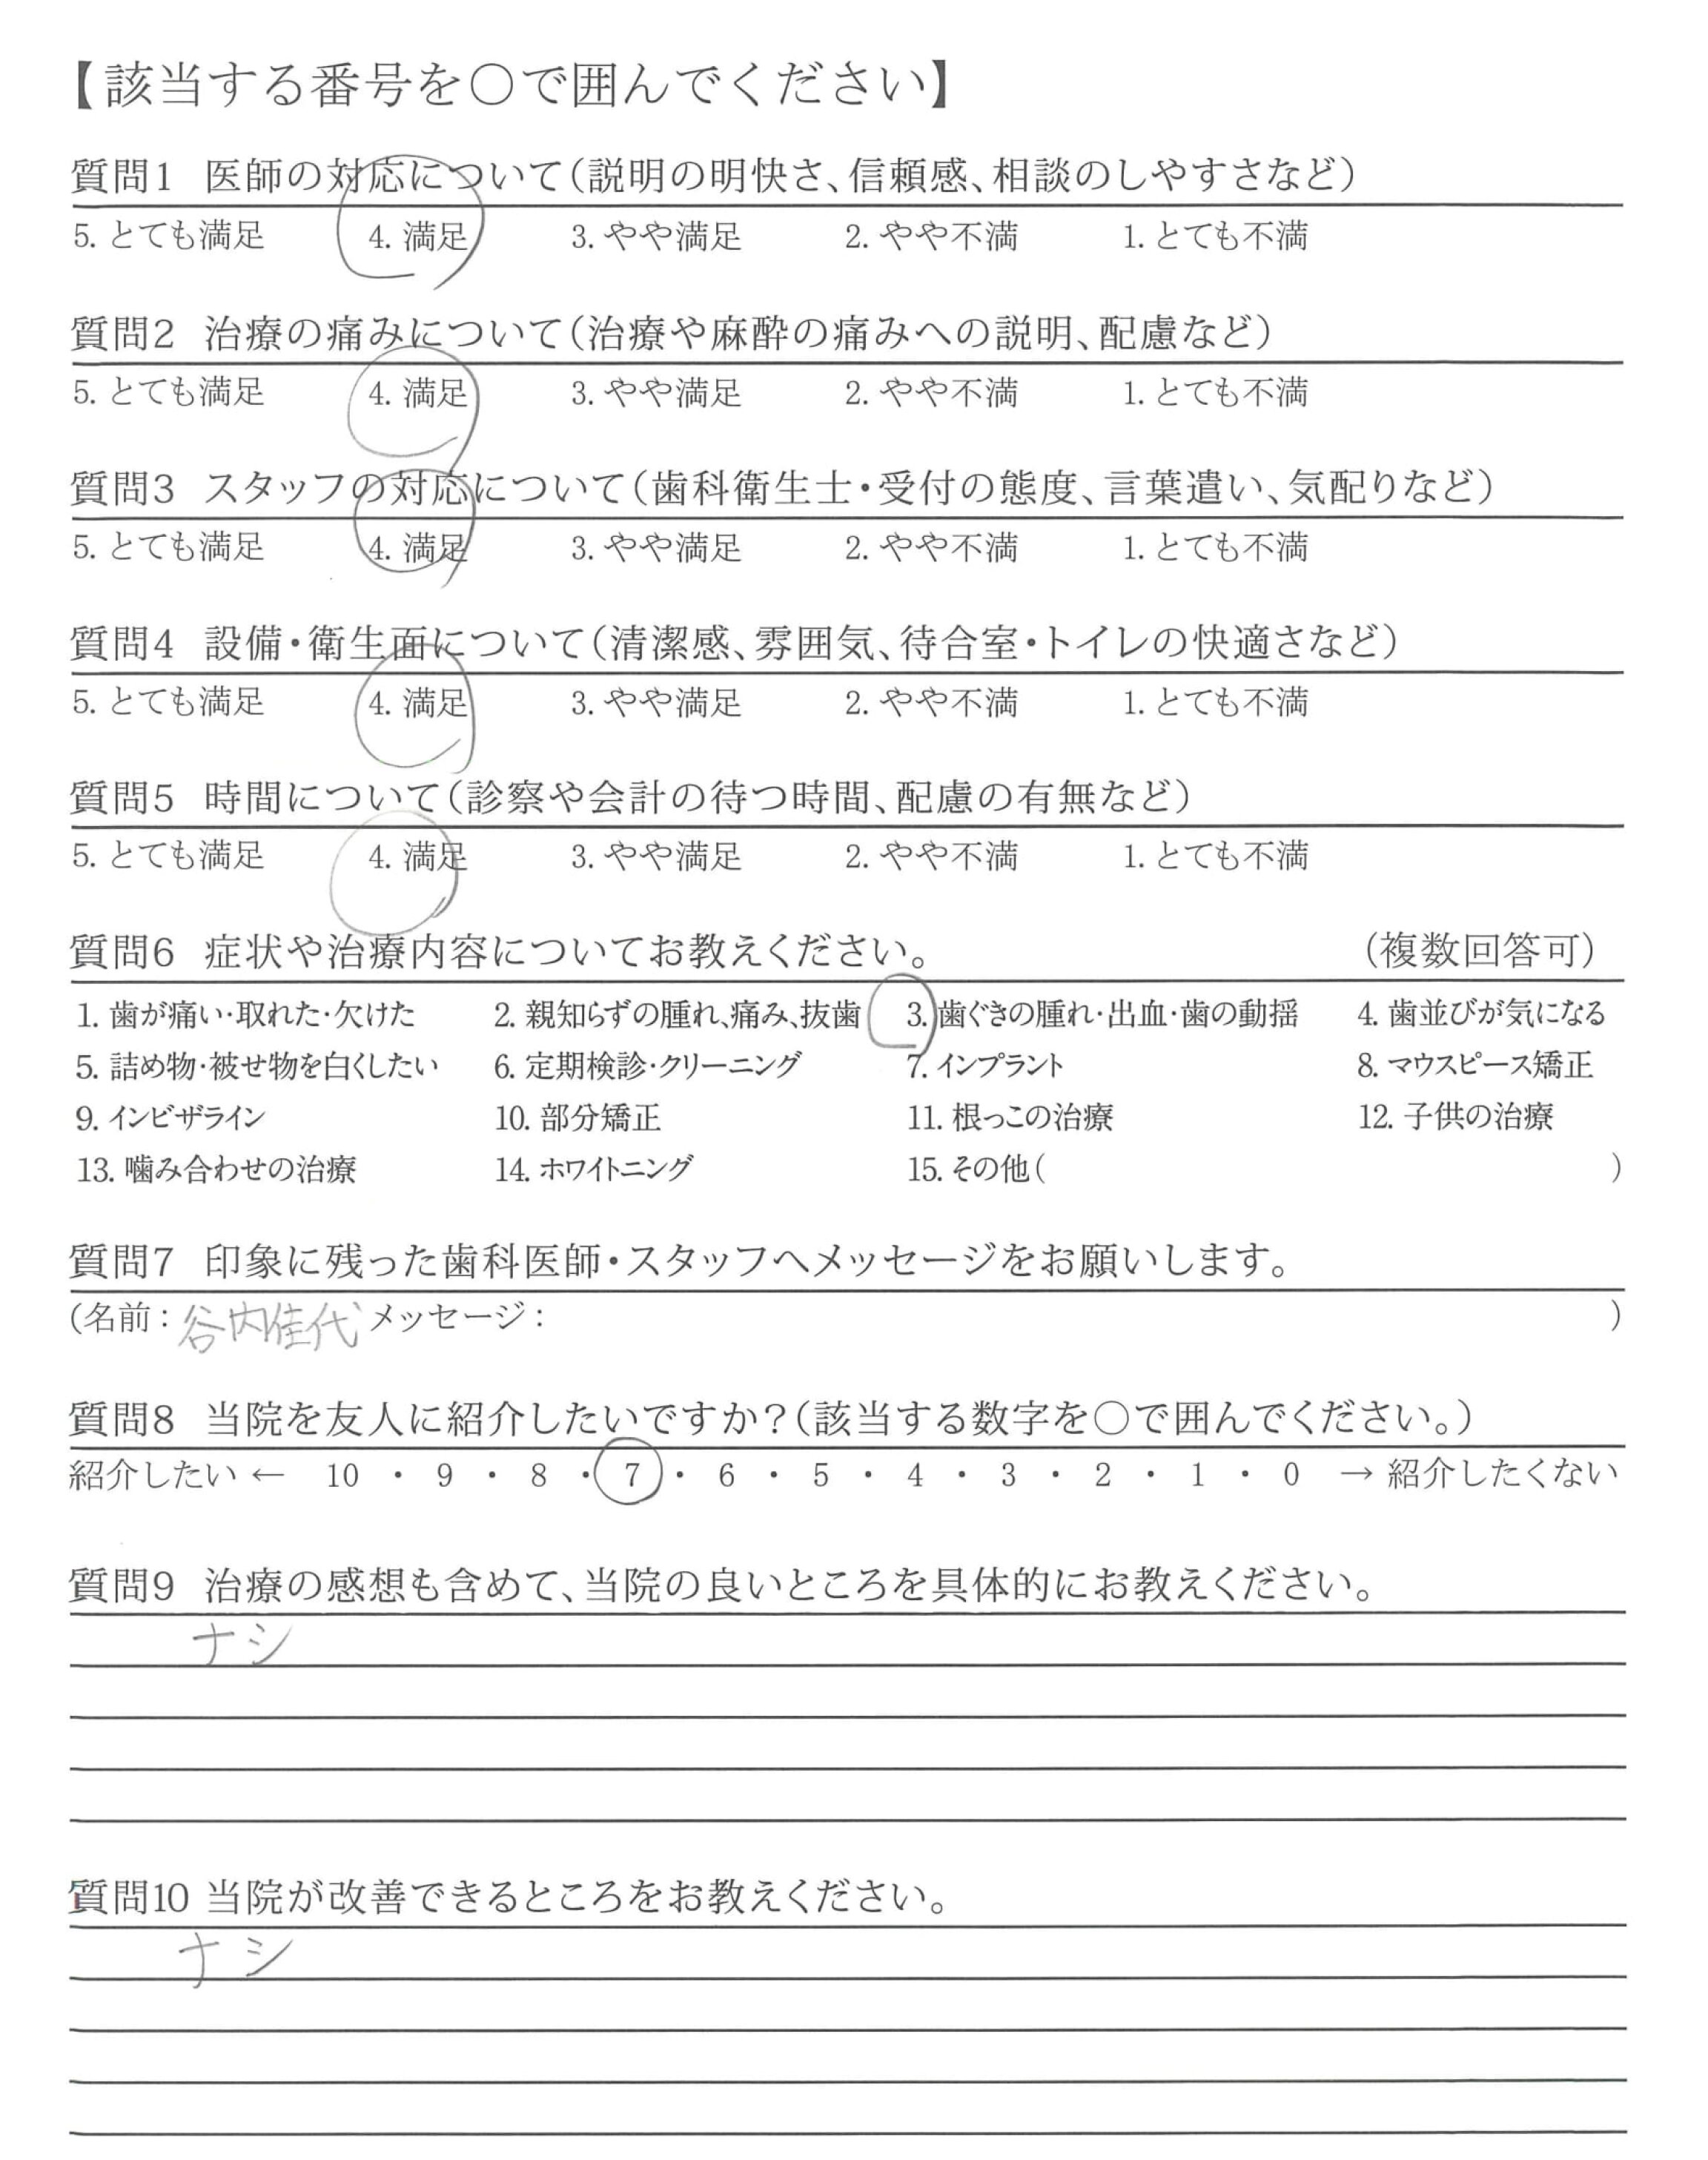 【該当する番号を○で囲んでください】
質問1 医師の対応について(説明の明快さ、信頼感、相談のしやすさなど)
5. とても満足 4. 満足 3. やや満足 2. やや不満 1. とても不満
質問2 治療の痛みについて(治療や麻酔の痛みへの説明、配慮など)
5. とても満足 4. 満足 3. やや満足 2. やや不満 1. とても不満
質問3 スタッフの対応について(歯科衛生士・受付の態度、言葉遣い、気配りなど)
5. とても満足 4. 満足 3. やや満足 2. やや不満 1. とても不満
質問4 設備・衛生面について(清潔感、雰囲気、待合室・トイレの快適さなど)
5. とても満足 4. 満足 3. やや満足 2. やや不満 1. とても不満
質問5 時間について(診察や会計の待つ時間、配慮の有無など)
5. とても満足 4. 満足 3. やや満足 2. やや不満 1. とても不満
質問6 症状や治療内容についてお教えください。 (複数回答可)
1. 歯が痛い・取れた・欠けた 2. 親知らずの腫れ、痛み、抜歯 3. 歯ぐきの腫れ・出血・歯の動揺 4. 歯並びが気になる
5. 詰め物・被せ物を白くしたい 6. 定期検診・クリーニング 7. インプラント 8. マウスピース矯正
9. インビザライン 10. 部分矯正 11. 根っこの治療 12. 子供の治療
13. 噛み合わせの治療 14. ホワイトニング 15. その他( )
質問7 印象に残った歯科医師・スタッフへメッセージをお願いします。
(名前：谷内佳代 メッセージ： )
質問8 当院を友人に紹介したいですか？(該当する数字を○で囲んでください。)
紹介したい ← 10 ・ 9 ・ 8 ・ 7 ・ 6 ・ 5 ・ 4 ・ 3 ・ 2 ・ 1 ・ 0 → 紹介したくない
質問9 治療の感想も含めて、当院の良いところを具体的にお教えください。
ナシ
質問10 当院が改善できるところをお教えください。
ナシ